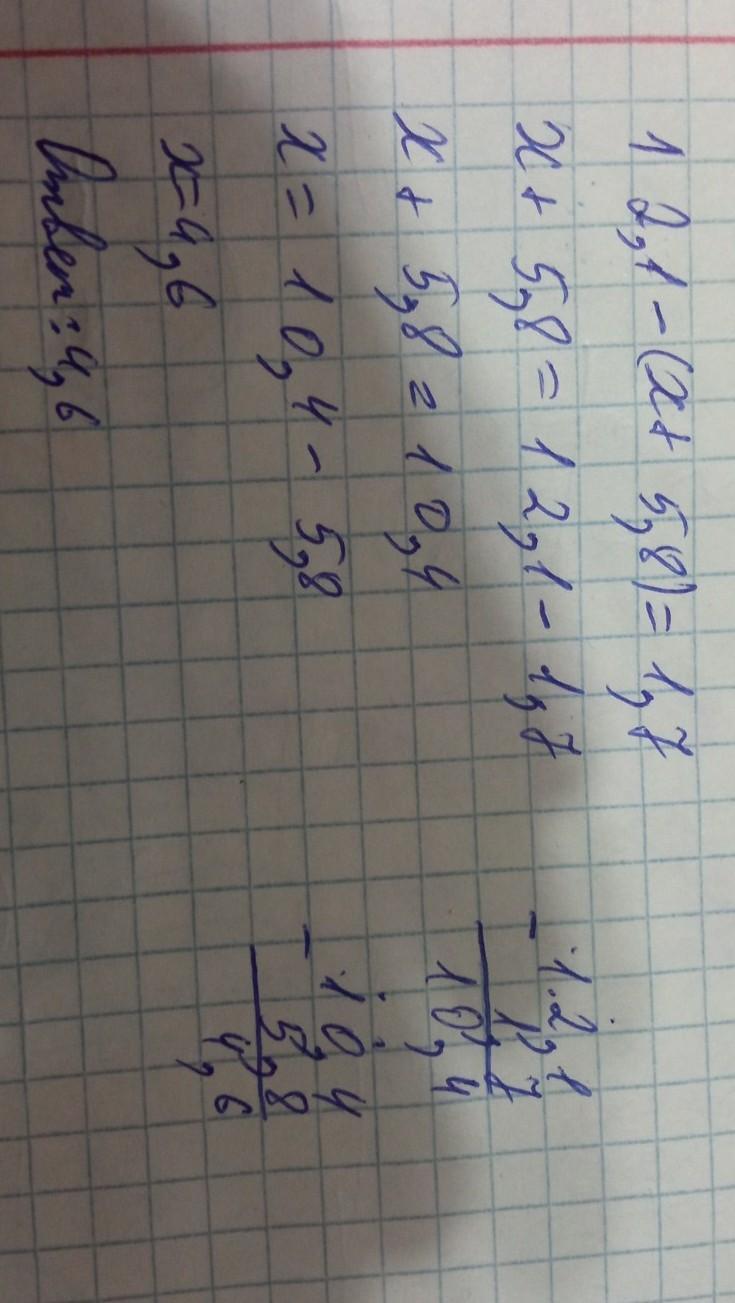 12,1-(x+5,8)=1,7
x+5,8=12,1-1,7
x+5,8=10,4
x=10,4-5,8
x=4,6
Ответ:4,6
-12,1
1,7
10,4
-10,4
5,8
4,6